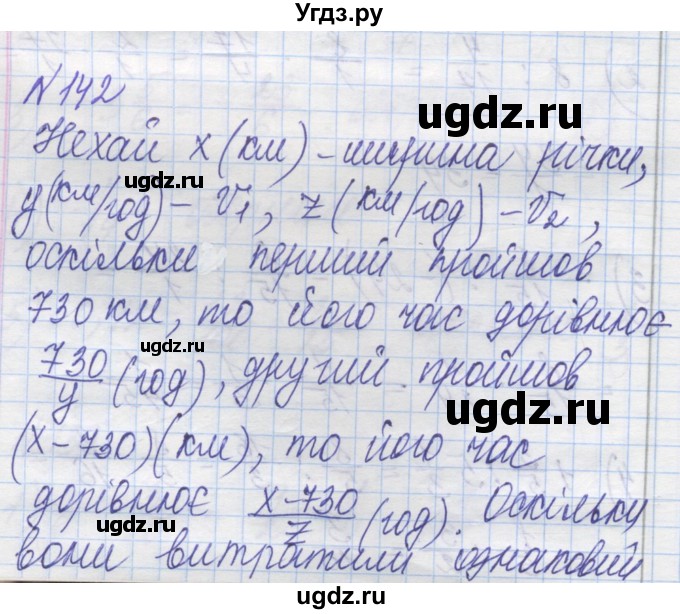 Угдз.ру
№ 142
Нехай x (км) – ширина річки,
y (км/год) – V₁, z (км/год) – V₂,
оскільки перший пройшов
730 км, то його час дорівнює
730/y (год), другий пройшов
(x – 730) (км), то його час
дорівнює x–730/z (год). Оскільки
вони витратили однаковий
ugdz.ru
ugdz.ru
ugdz.ru
ugdz.ru
ugdz.ru
ugdz.ru
ugdz.ru
ugdz.ru